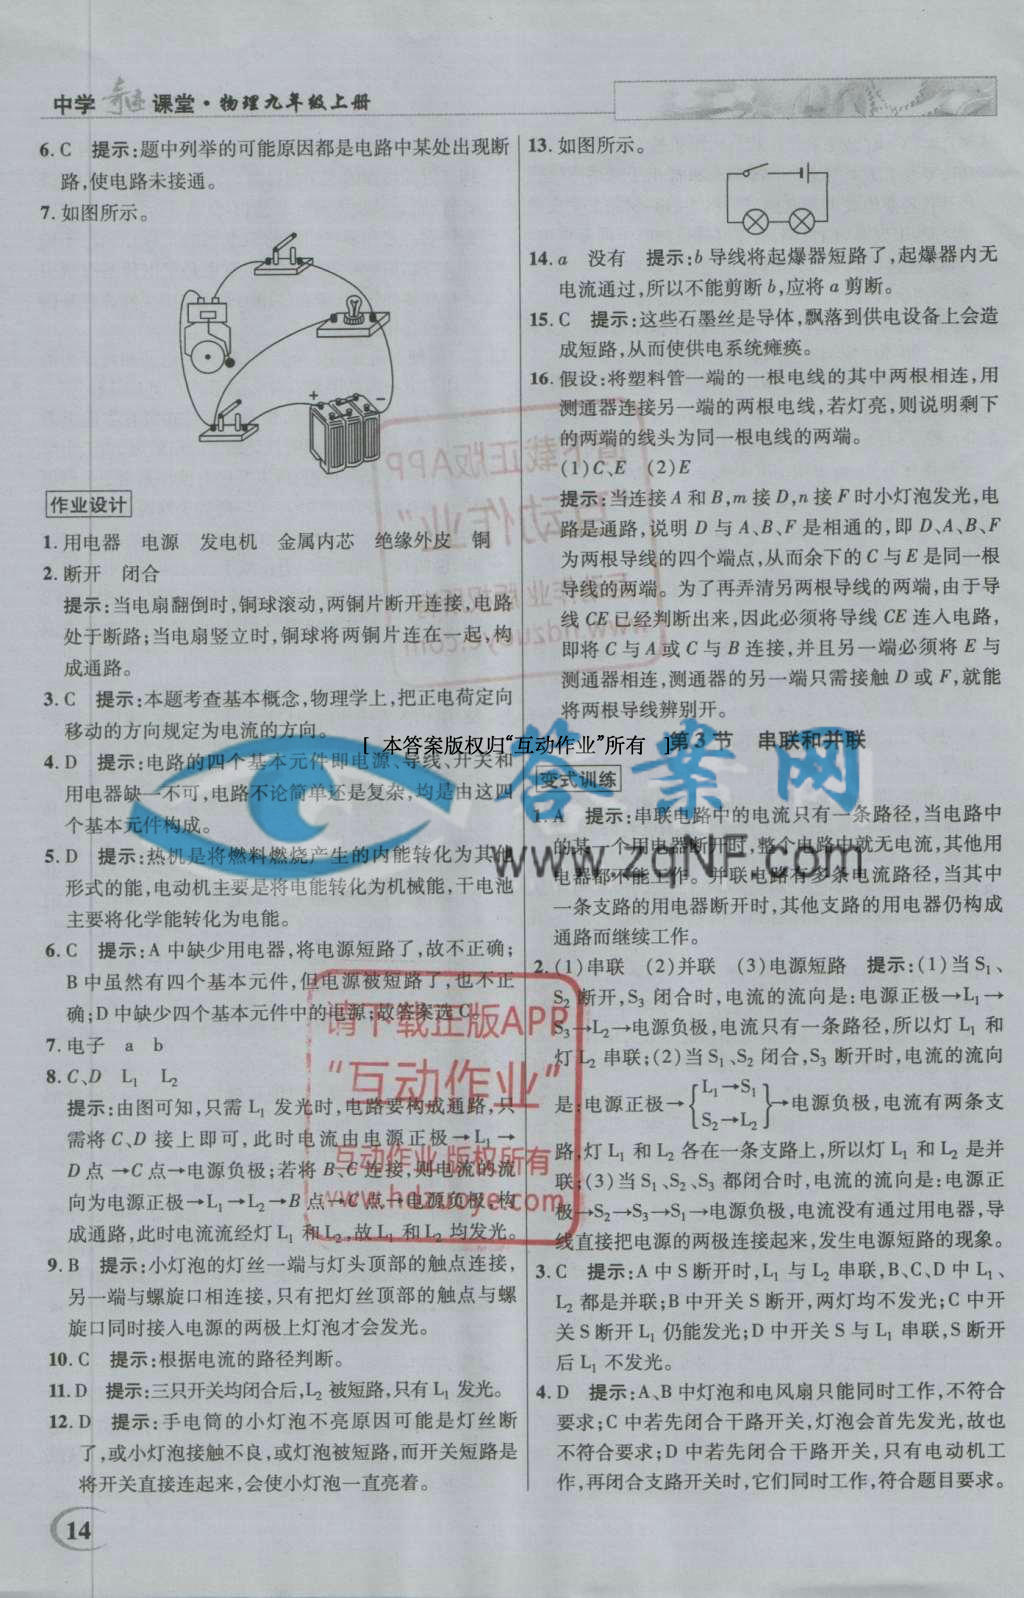 中学奇迹课堂·物理九年级上册
6. C 提示:题中列举的可能原因都是电路中某处出现断
路,使电路未接通。
7. 如图所示。
+ −
作业设计
1. 用电器 电源 发电机 金属内芯 绝缘外皮 铜
2. 断开 闭合
提示:当电扇翻倒时,铜球滚动,两铜片断开连接,电路
处于断路;当电扇竖立时,铜球将两铜片连在一起,构
成通路。
3. C 提示:本题考查基本概念,物理学上,把正电荷定向
移动的方向规定为电流的方向。
4. D 提示:电路的四个基本元件即电源、导线、开关和
用电器缺一不可,电路不论简单还是复杂,均是由这四
个基本元件构成。
5. D 提示:热机是将燃料燃烧产生的内能转化为其他
形式的能,电动机主要是将电能转化为机械能,干电池
主要将化学能转化为电能。
6. C 提示:A 中缺少用电器,将电源短路了,故不正确;
B 中虽然有四个基本元件,但电源被短路了,也不正
确;D 中缺少四个基本元件中的电源;故答案选 C。
7. 电子 a b
8. C、D L₁ L₂
提示:由图可知,只需 L₁ 发光时,电路要构成通路,只
需将 C、D 接上即可,此时电流由电源正极→L₁→
D 点→C 点→电源负极;若将 B、C 连接,则电流的流
向为电源正极→L₁→L₂→B 点→C 点→电源负极,构
成通路,此时电流流经灯 L₁ 和 L₂,故 L₁ 和 L₂ 均发光。
9. B 提示:小灯泡的灯丝一端与灯头顶部的触点连接,
另一端与螺旋口相连接,只有把灯丝顶部的触点与螺
旋口同时接入电源的两极上灯泡才会发光。
10. C 提示:根据电流的路径判断。
11. D 提示:三只开关均闭合后,L₂ 被短路,只有 L₁ 发光。
12. D 提示:手电筒的小灯泡不亮原因可能是灯丝断
了,或小灯泡接触不良,或灯泡被短路,而开关短路是
将开关直接连起来,会使小灯泡一直亮着。
14
13. 如图所示。
14. a 没有 提示:b 导线将起爆器短路了,起爆器内无
电流通过,所以不能剪断 b,应将 a 剪断。
15. C 提示:这些石墨丝是导体,飘落到供电设备上会造
成短路,从而使供电系统瘫痪。
16. 假设:将塑料管一端的一根电线的其中两根相连,用
测通器连接另一端的两根电线,若灯亮,则说明剩下
的两端的线头为同一根电线的两端。
(1)C、E (2)E
提示:当连接 A 和 B,m 接 D,n 接 F 时小灯泡发光,电
路是通路,说明 D 与 A、B、F 是相通的,即 D、A、B、F
为两根导线的四个端点,从而余下的 C 与 E 是同一根
导线的两端。为了再弄清另两根导线的两端,由于导
线 CE 已经判断出来,因此必须将导线 CE 连入电路,
即将 C 与 A 或 C 与 B 连接,并且另一端必须将 E 与
测通器相连,测通器的另一端只需接触 D 或 F,就能
将两根导线辨别开。
[ 本答案版权归“互动作业”所有 ]
第 3 节 串联和并联
变式训练
1. A 提示:串联电路中的电流只有一条路径,当电路中
的某一个用电器断开时,整个电路中就无电流,其他用
电器都不能工作。并联电路有多条电流路径,当其中
一条支路的用电器断开时,其他支路的用电器仍构成
通路而继续工作。
2. (1)串联 (2)并联 (3)电源短路 提示:(1)当 S₁、
S₂ 断开,S₃ 闭合时,电流的流向是:电源正极→L₁→
S₃→L₂→电源负极,电流只有一条路径,所以灯 L₁ 和
灯 L₂ 串联;(2)当 S₁、S₂ 闭合,S₃ 断开时,电流的流向
是:电源正极→{L₁→S₁ S₂→L₂}→电源负极,电流有两条支
路,灯 L₁ 和 L₂ 各在一条支路上,所以灯 L₁ 和 L₂ 是并
联;(3)当 S₁、S₂、S₃ 都闭合时,电流的流向是:电源正
极→S₂→S₃→S₁→电源负极,电流没有通过用电器,导
线直接把电源的两极连接起来,发生电源短路的现象。
3. C 提示:A 中 S 断开时,L₁ 与 L₂ 串联,B、C、D 中 L₁、
L₂ 都是并联;B 中开关 S 断开,两灯均不发光;C 中开
关 S 断开 L₁ 仍能发光;D 中开关 S 与 L₁ 串联,S 断开
后 L₁ 不发光。
4. D 提示:A、B 中灯泡和电风扇只能同时工作,不符合
要求;C 中若先闭合干路开关,灯泡会首先发光,故也
不符合要求;D 中若先闭合干路开关,只有电动机工
作,再闭合支路开关时,它们同时工作,符合题目要求。
答案网
www.zqNF.com
请下载正版APP
“互动作业”
互动作业 版权所有
www.hdzuoye.com
请下载正版APP
“互动作业”
互动作业 版权所有
www.hdzuoye.com